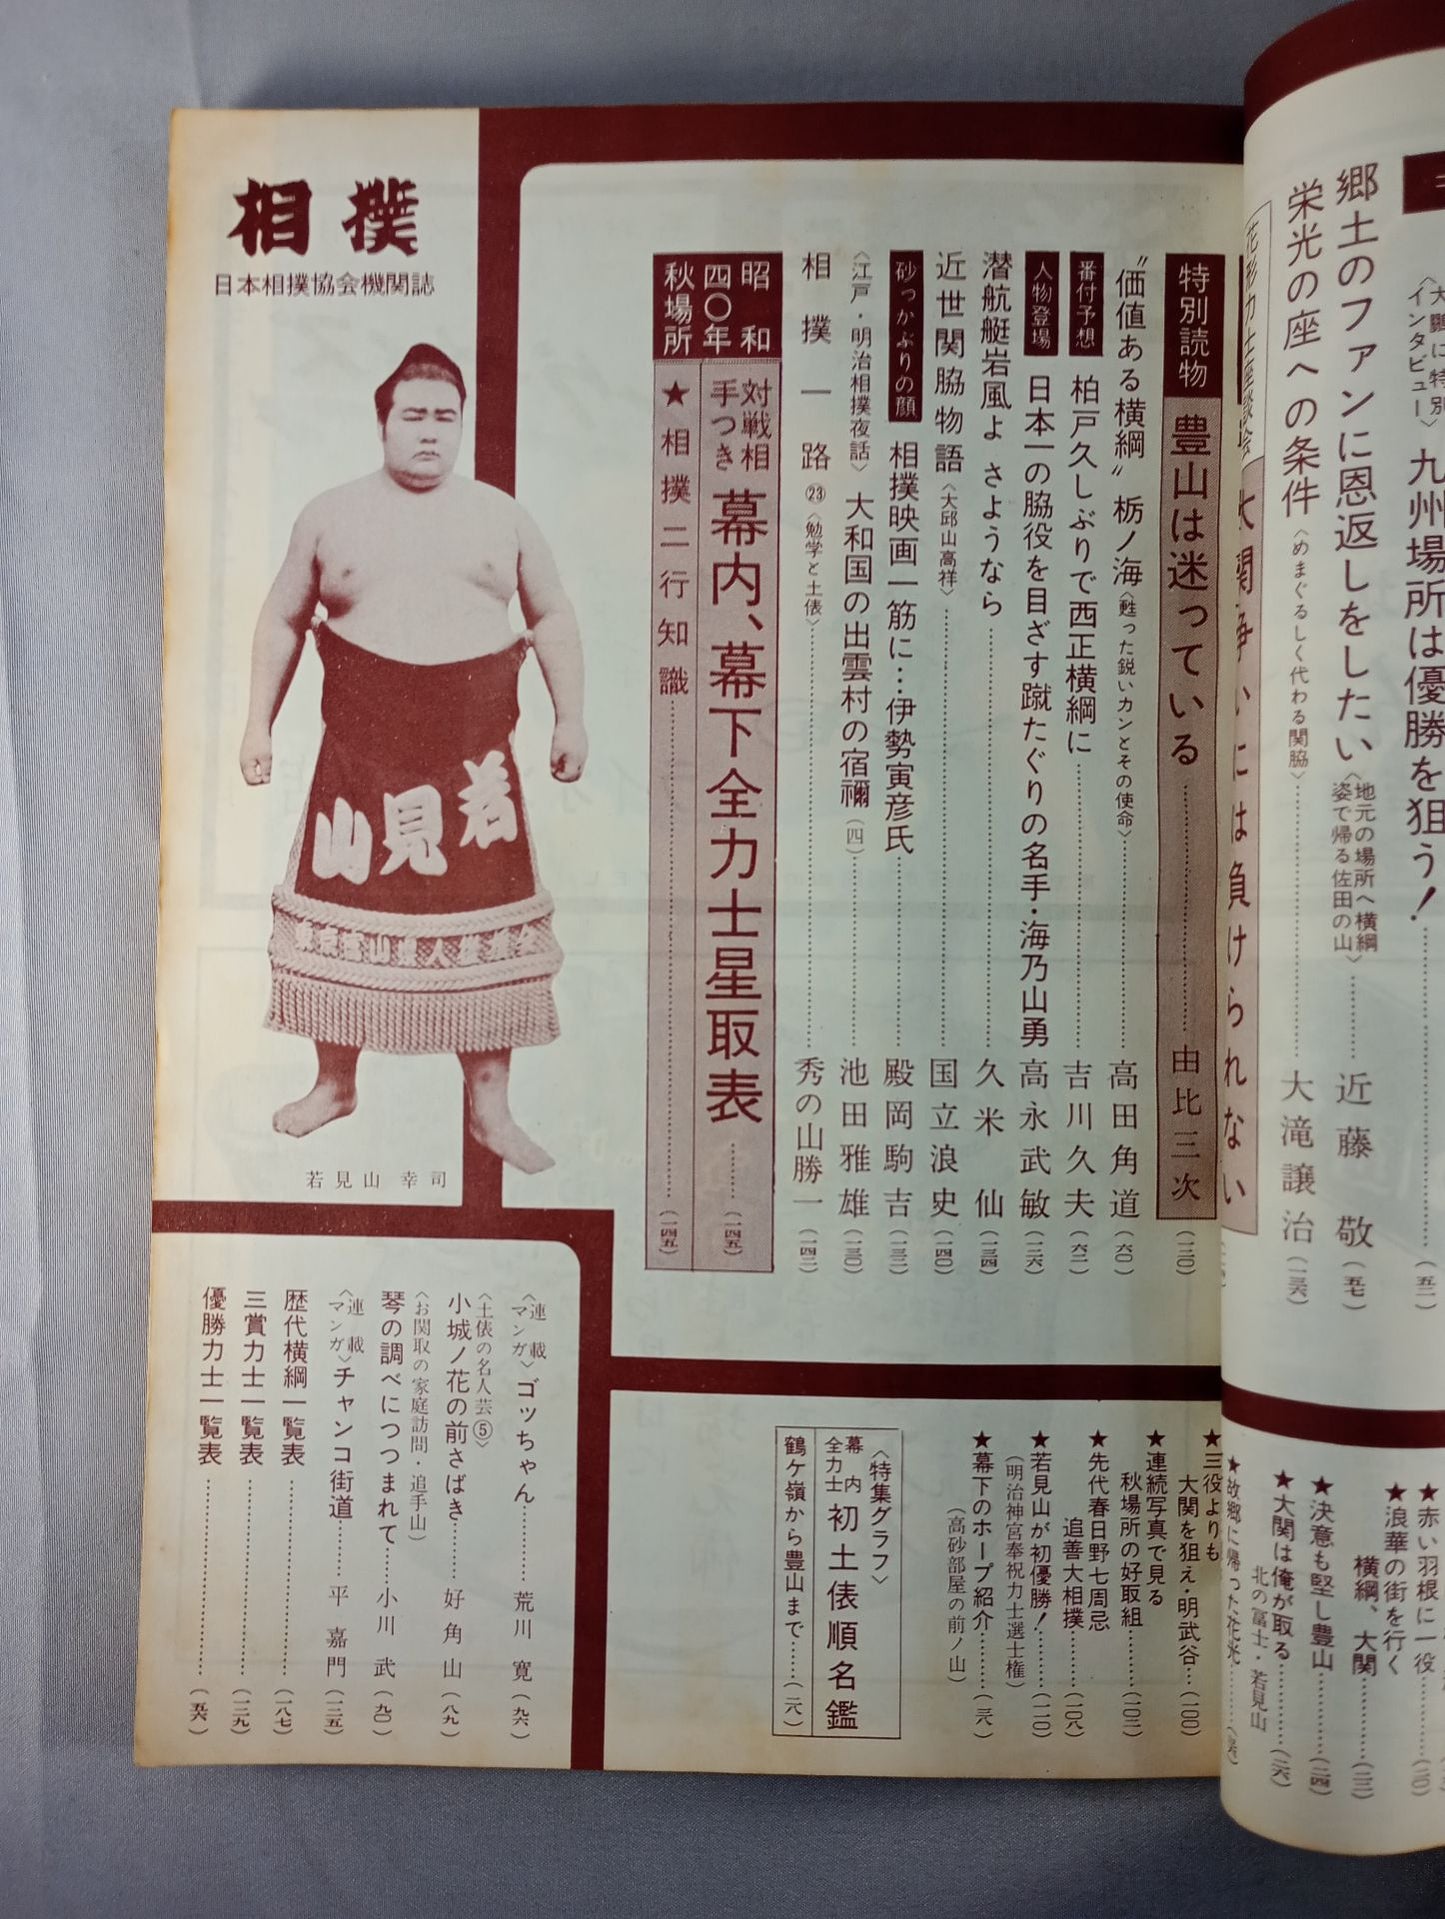 郷土のファンに恩返しをしたい
〈地元の場所へ横綱
姿で帰る佐田の山〉
近藤敬
(五七)
栄光の座への条件
〈めまぐるしく代わる関脇〉
大滝譲治
九州場所は優勝を狙う!
特別読物
豊山は迷っている
由比三次
(一二〇)
〝価値ある横綱〟栃ノ海〈甦った鋭いカンとその使命〉
高田角道
(六〇)
番付予想
柏戸久しぶりで西正横綱に
吉川久夫
(六二)
人物登場
日本一の脇役を目ざす蹴たぐりの名手・海乃山勇
高永武敏
(一二六)
潜航艇岩風よ さようなら
久米仙
(一三四)
近世関脇物語〈大邱山高祥〉
国立浪史
(一四〇)
砂っかぶりの顔
相撲映画一筋に…伊勢寅彦氏
殿岡駒吉
(一三二)
〈江戸・明治相撲夜話〉
大和国の出雲村の宿禰(四)
池田雅雄
(一三〇)
相撲一路㉓〈勉学と土俵〉
秀の山勝一
(一四二)
昭和
四〇年
秋場所
対戦相
手つき
幕内、幕下全力士星取表
(一四五)
★相撲二行知識
(一四五)
相撲
日本相撲協会機関誌
若見山
若見山 幸司
★赤い羽根に一役
★浪華の街を行く
横綱、大関
★決意も堅し豊山
(二四)
★大関は俺が取る
北の冨士・若見山
(二六)
★三役よりも
大関を狙え・明武谷…(一〇〇)
★連続写真で見る
秋場所の好取組
(一〇二)
★先代春日野七周忌
追善大相撲
(一〇八)
★若見山が初優勝!
(一一〇)
(明治神宮奉祝力士選士権)
★幕下のホープ紹介
(高砂部屋の前ノ山)
〈特集グラフ〉
幕内
全力士
初土俵順名鑑
鶴ケ嶺から豊山まで
(二八)
〈連載
マンガ〉ゴッちゃん
荒川寛
(九六)
〈土俵の名人芸⑤〉
小城ノ花の前さばき
好角山
(八九)
〈お関取の家庭訪問・追手山〉
琴の調べにつつまれて
小川武
(九〇)
〈連載
マンガ〉チャンコ街道
平嘉門
(一三五)
歴代横綱一覧表
(一八七)
三賞力士一覧表
(一二九)
優勝力士一覧表
(五六)